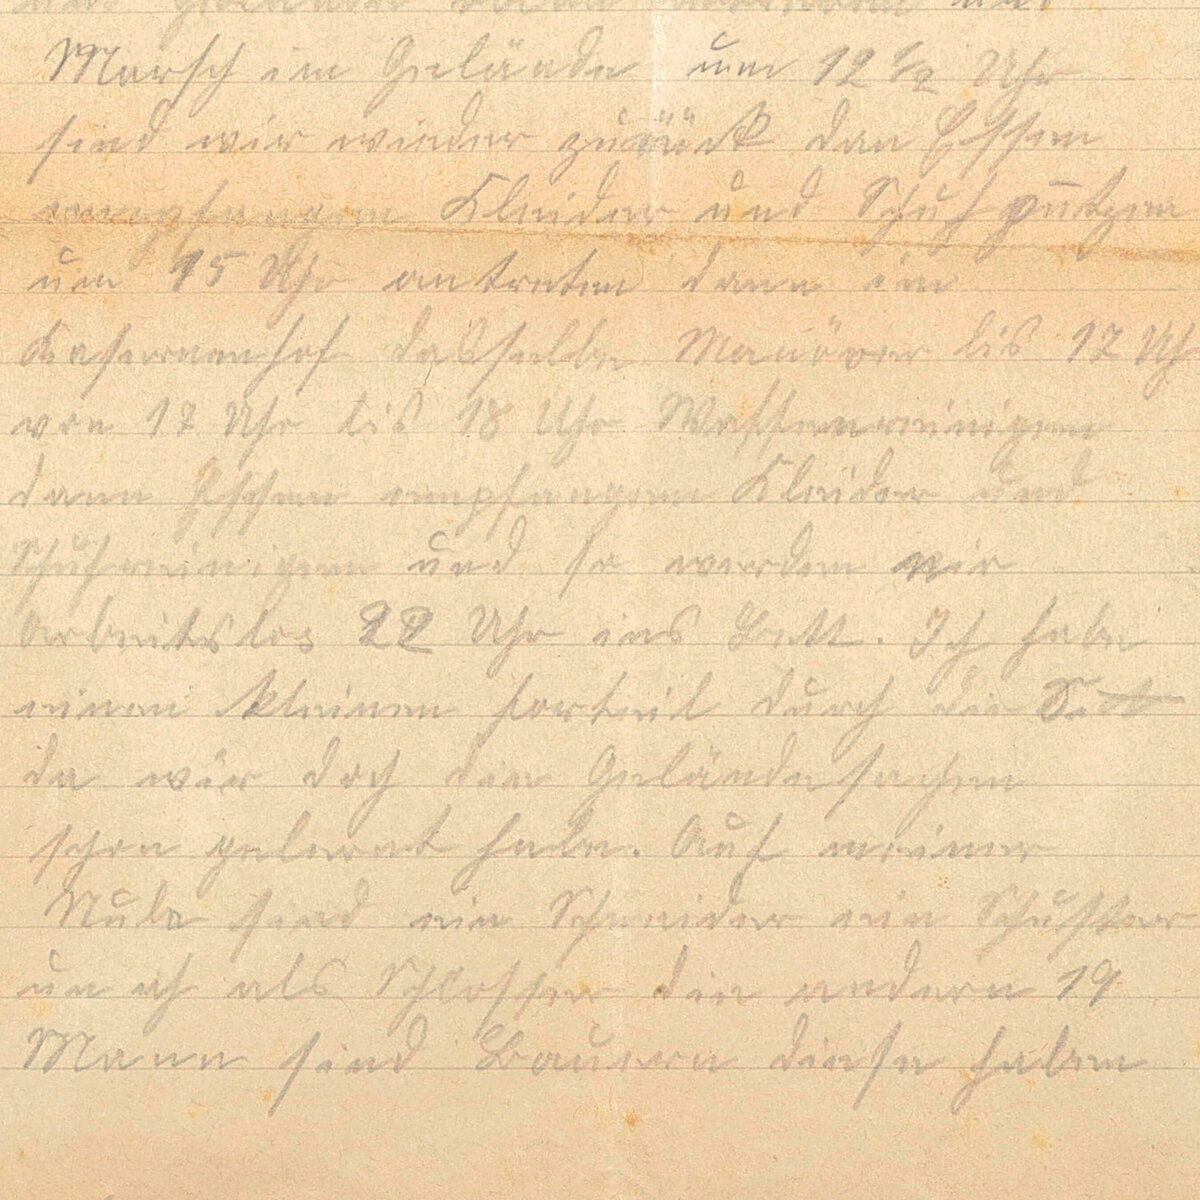 Marsch im Gelände um 12 1/2 Uhr
sind wir wieder zurück dan Essen
empfangen Kleider und Schuh putzen
um 15 Uhr antreten dann im
Kasernenhof dasselbe Manöver bis 17 Uh
von 17 Uhr bis 18 Uhr Waffenreinigen
dann Essen empfangen Kleider und
Schuhreinigen und so werden wir
Arbeitslos 22 Uhr ins Bett. Ich habe
einen kleinen forteil durch die
da wir doch die Geländesachen
schon gelernt habe. Auf meiner
Stube sind ein Schneider ein Schuster
un ich als Schlosser die andern 19
Mann sind Bauern diese haben